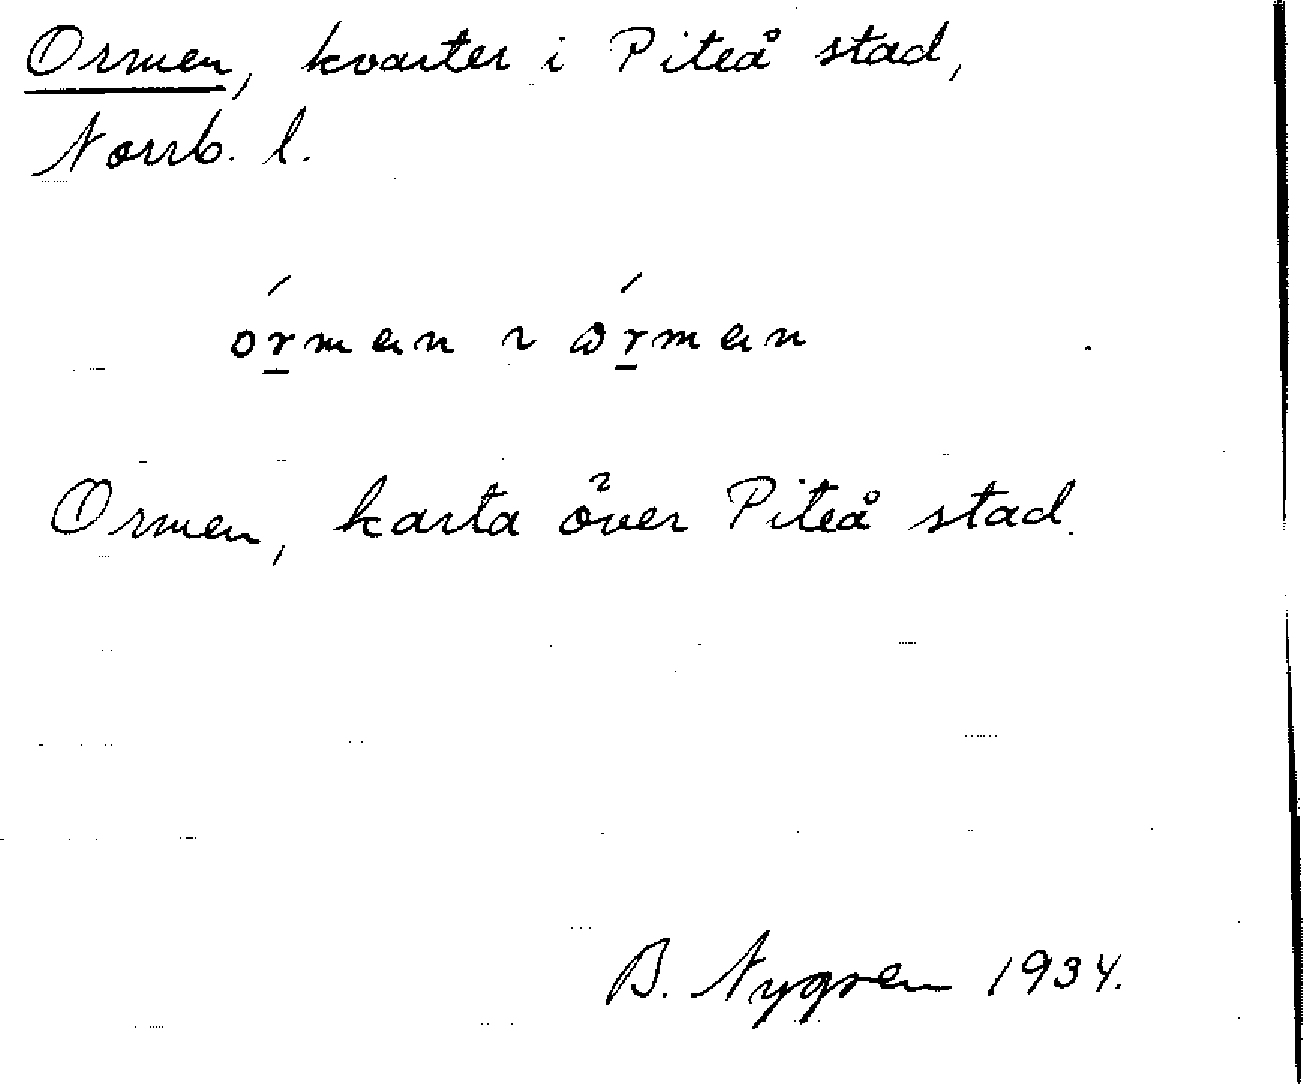 Ormen, kvarter i Piteå stad,
Norrb. l.
órman ~ ɷ́rman
Ormen, karta över Piteå stad.
B. Nygren 1934.